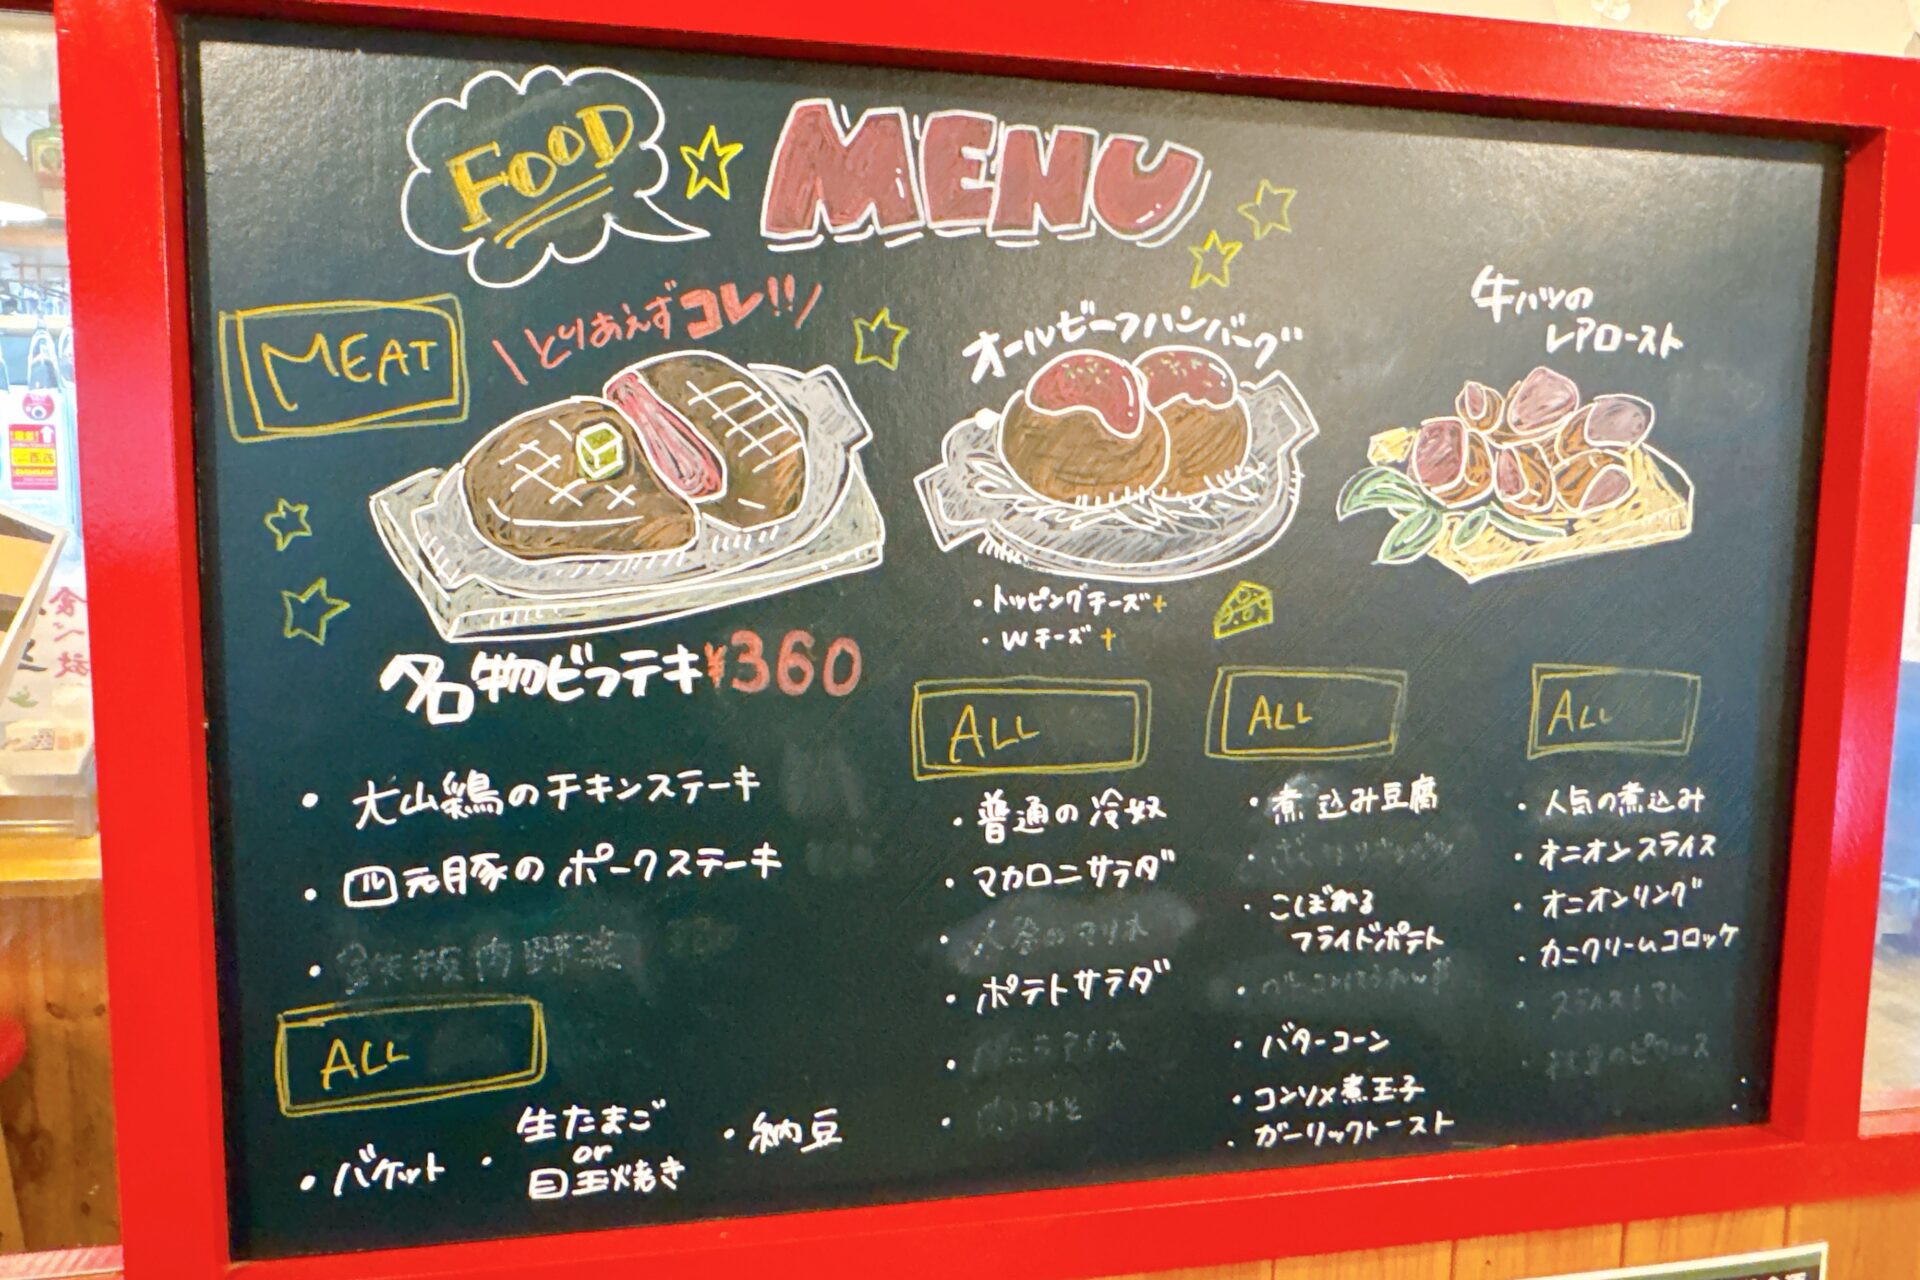 FOOD
MENU
MEAT
\とりあえずコレ!!/
名物ビフテキ ¥360
オールビーフハンバーグ
・トッピングチーズ+
・Wチーズ+
牛ハツの
レアロースト
・大山鶏のチキンステーキ
・四元豚のポークステーキ
ALL
・バケット
・生たまご
or
目玉焼き
・納豆
ALL
・普通の冷奴
・マカロニサラダ
・ポテトサラダ
ALL
・煮込み豆腐
・こぼれる
フライドポテト
・バターコーン
・コンソメ煮玉子
・ガーリックトースト
ALL
・人気の煮込み
・オニオンスライス
・オニオンリング
・カニクリームコロッケ